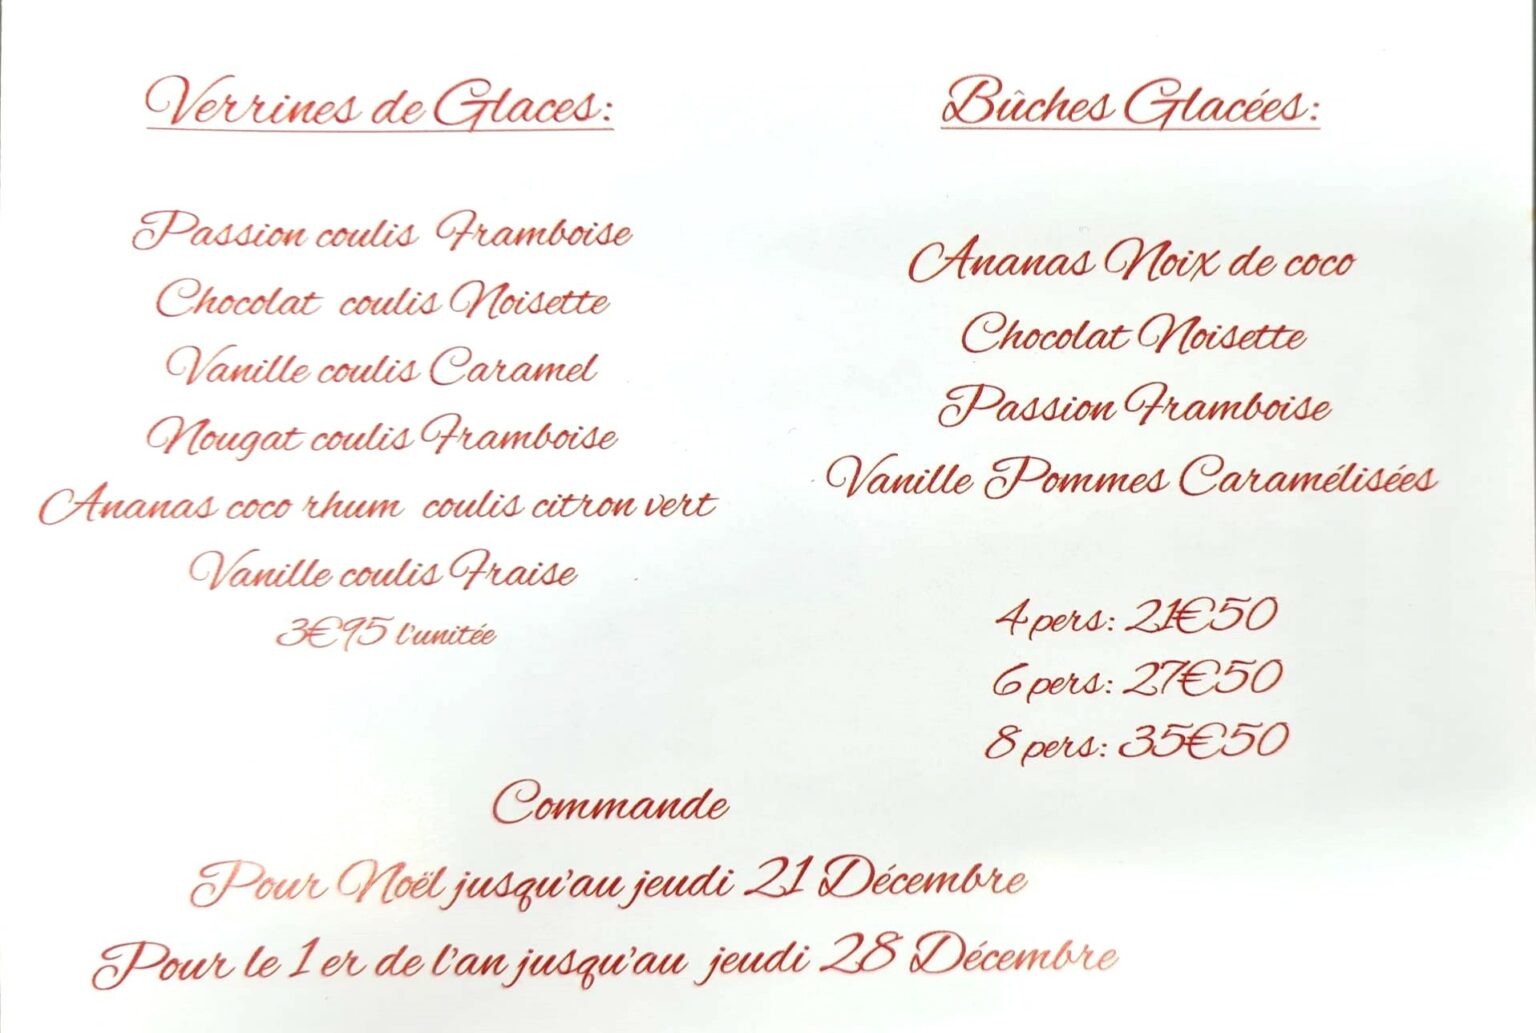 Verrines de Glaces:
Passion coulis Framboise
Chocolat coulis Noisette
Vanille coulis Caramel
Nougat coulis Framboise
Ananas coco rhum coulis citron vert
Vanille coulis Fraise
3€95 l'unitée
Bûches Glacées:
Ananas Noix de coco
Chocolat Noisette
Passion Framboise
Vanille Pommes Caramélisées
4 pers: 21€50
6 pers: 27€50
8 pers: 35€50
Commande
Pour Noël jusqu'au jeudi 21 Décembre
Pour le 1er de l'an jusqu'au jeudi 28 Décembre